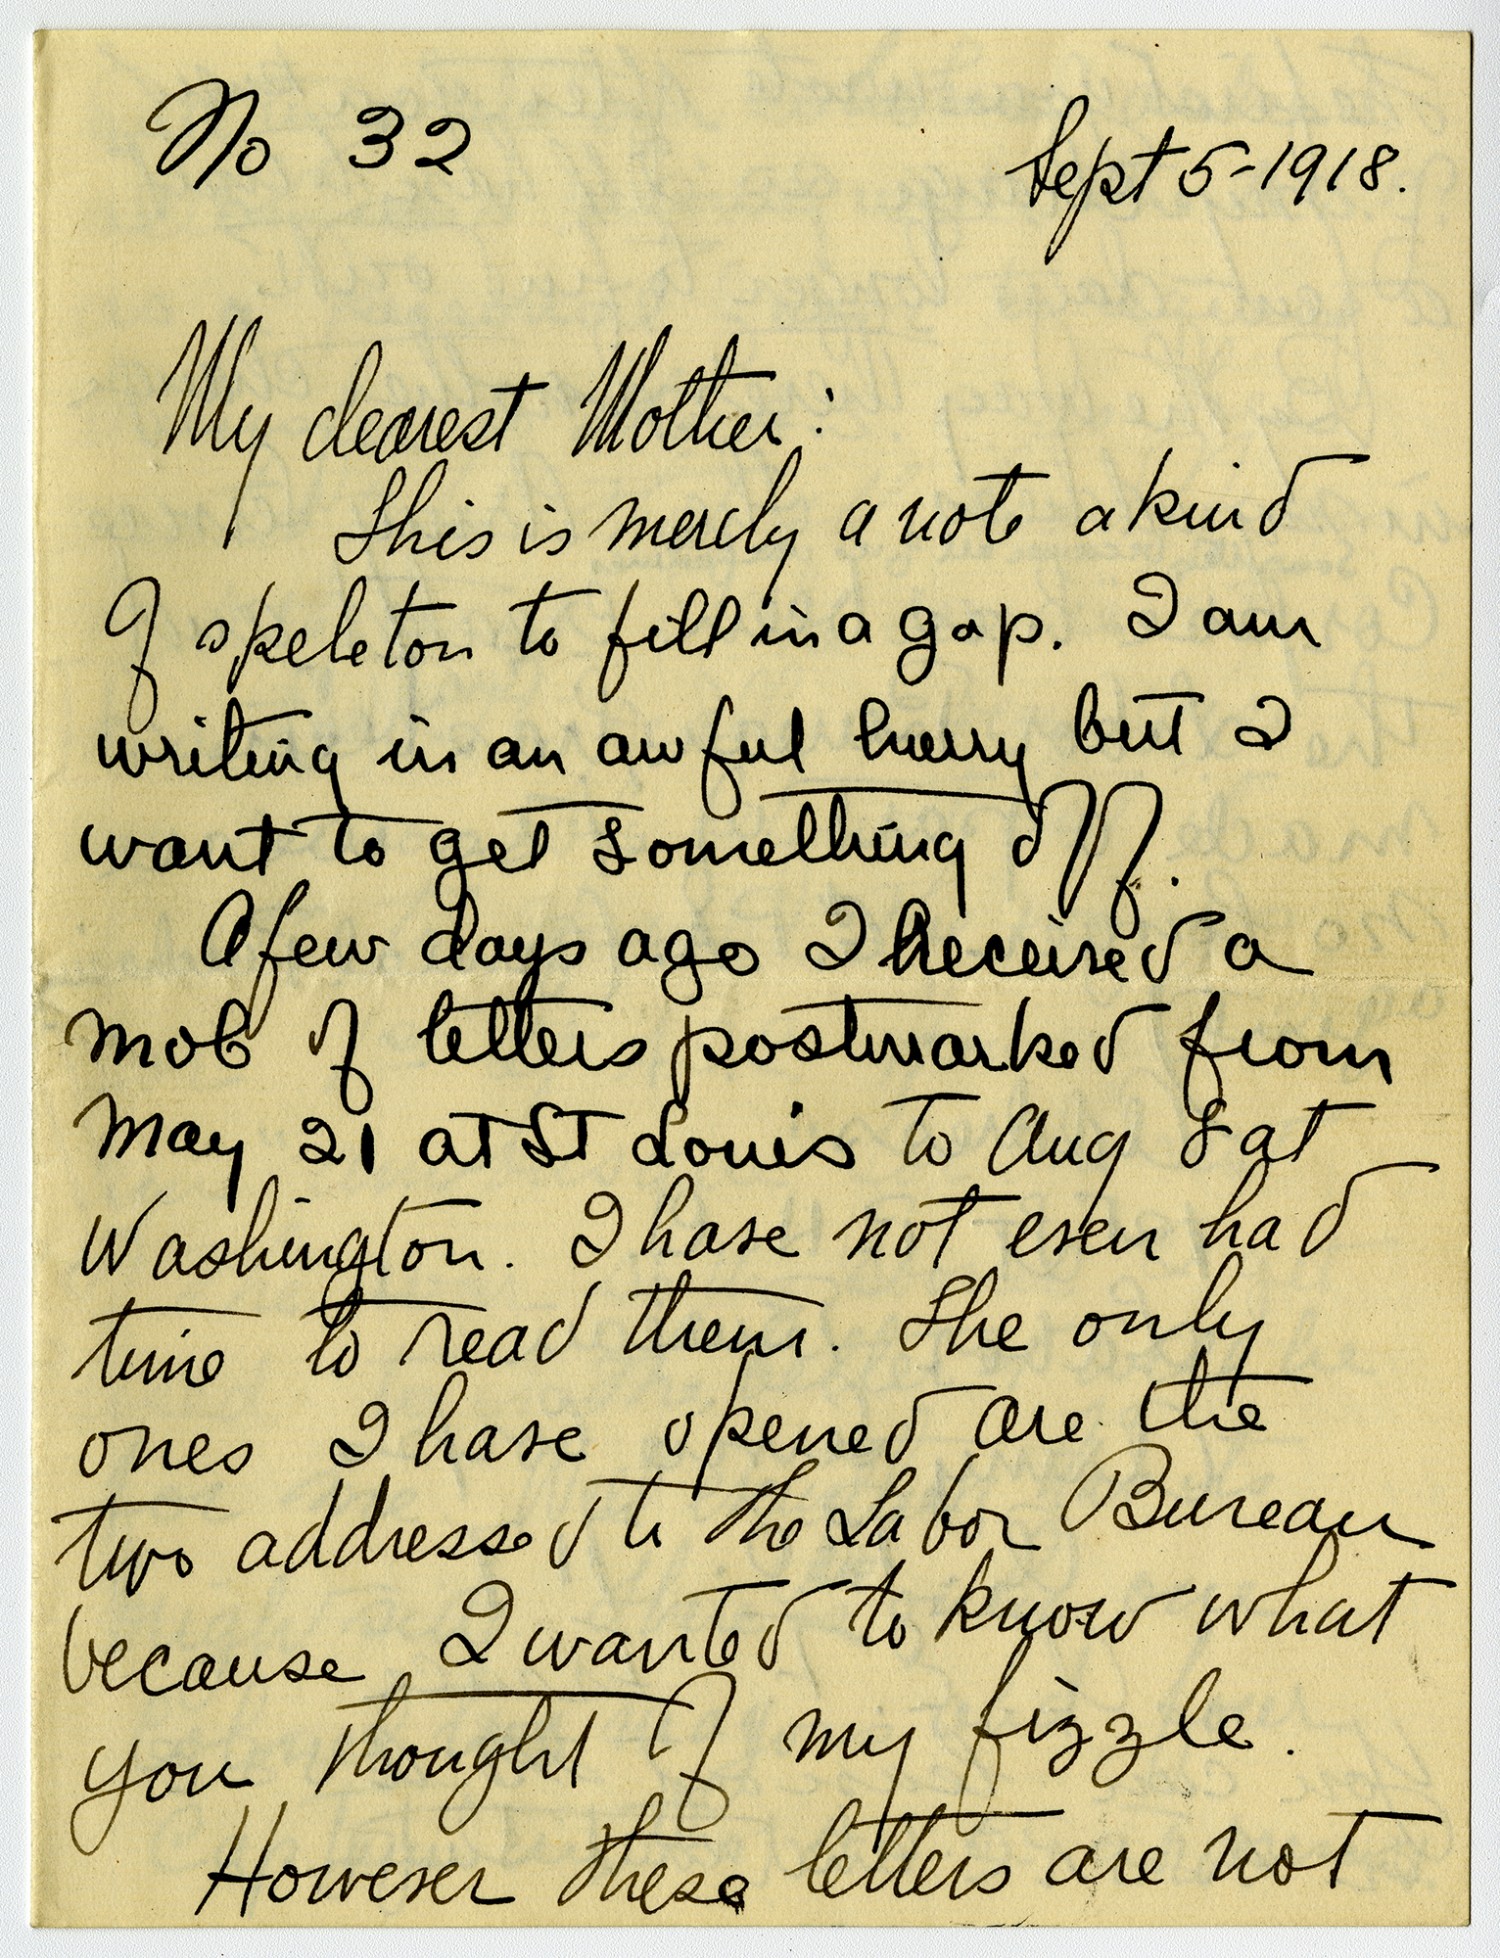 No 32
Sept 5-1918.
My dearest Mother:
This is merely a note a kind
of skeleton to fill in a gap. I am
writing in an awful hurry but I
want to get something off.
A few days ago I received a
mob of letters postmarked from
May 21 at St Louis to Aug 8 at
Washington. I have not even had
time to read them. The only
ones I have opened are the
two addressed to the Labor Bureau
because I wanted to know what
you thought of my fizzle.
However these letters are not